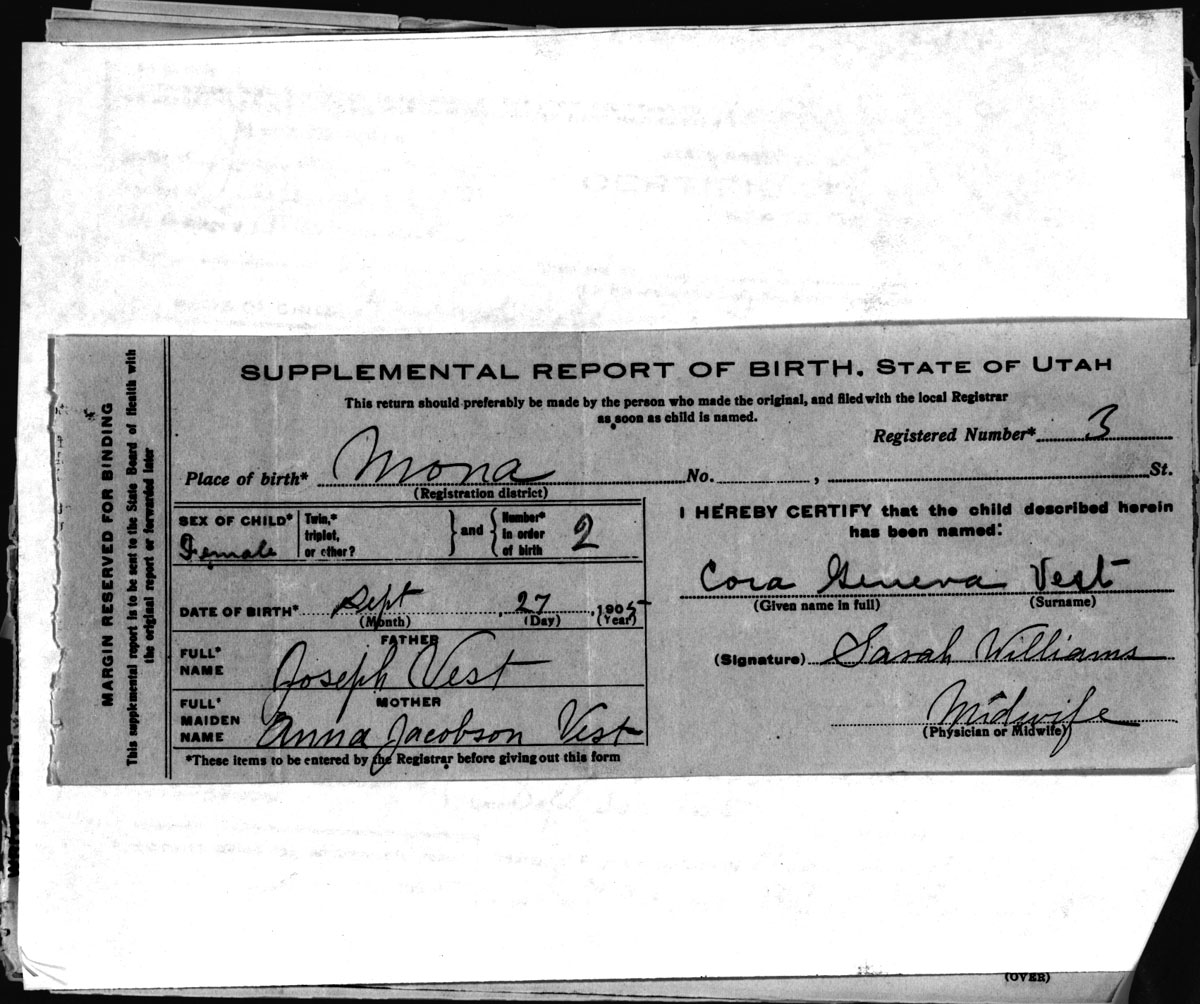 SUPPLEMENTAL REPORT OF BIRTH. STATE OF UTAH
This return should preferably be made by the person who made the original, and filed with the local Registrar
as soon as child is named.
Registered Number* 3
Place of birth* Mona No. , St.
(Registration district)
SEX OF CHILD* Female
Twin,*
triplet,
or other?
and
Number*
in order
of birth
2
DATE OF BIRTH* Sept 27, 1905
(Month) (Day) (Year)
FATHER
FULL*
NAME
Joseph Vest
MOTHER
FULL*
MAIDEN
NAME
Anna Jacobson Vest
*These items to be entered by the Registrar before giving out this form
I HEREBY CERTIFY that the child described herein
has been named:
Cora Geneva Vest
(Given name in full) (Surname)
(Signature) Sarah Williams
Midwife
(Physician or Midwife)
MARGIN RESERVED FOR BINDING
This supplemental report is to be sent to the State Board of Health with
the original report or forwarded later
(OVER)